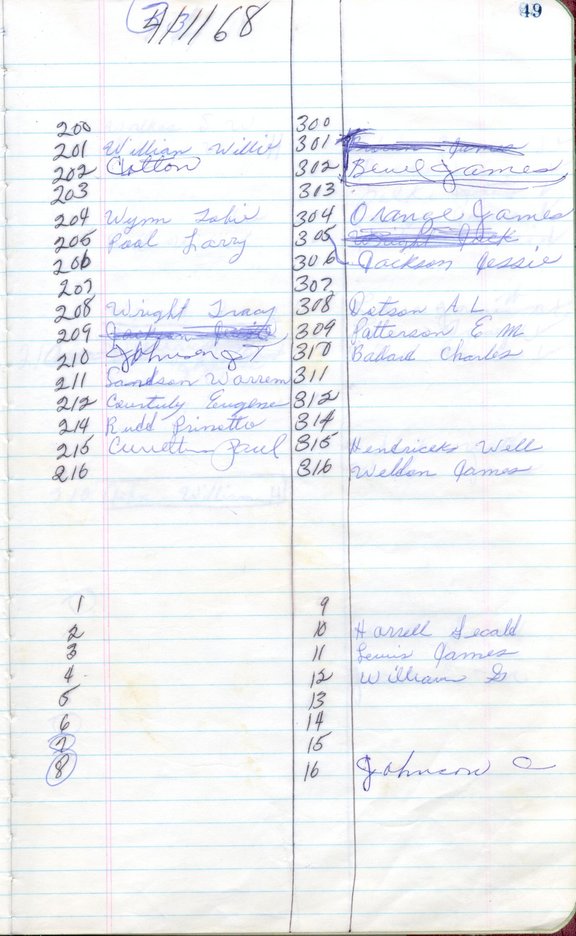 49
4/1/68
200
201 William Willie
202 Cotton
203
204 Wynn
205 Pool Larry
206
207
208 Wright Tracy
209
210 Johnson
211 Sandson Warren
212 Eugene
214 Rudd
215 Paul
216
300
301 James
302 Bevel James
303
304 Orange James
305 Wright Jack
306 Jackson Jessie
307
308 Dotson A L
309 Patterson E M
310 Ballard Charles
311
312
314
315 Hendricks Well
316 Weldon James
1
2
3
4
5
6
7
8
9
10 Harrell
11 Lewis James
12 William G
13
14
15
16 Johnson C